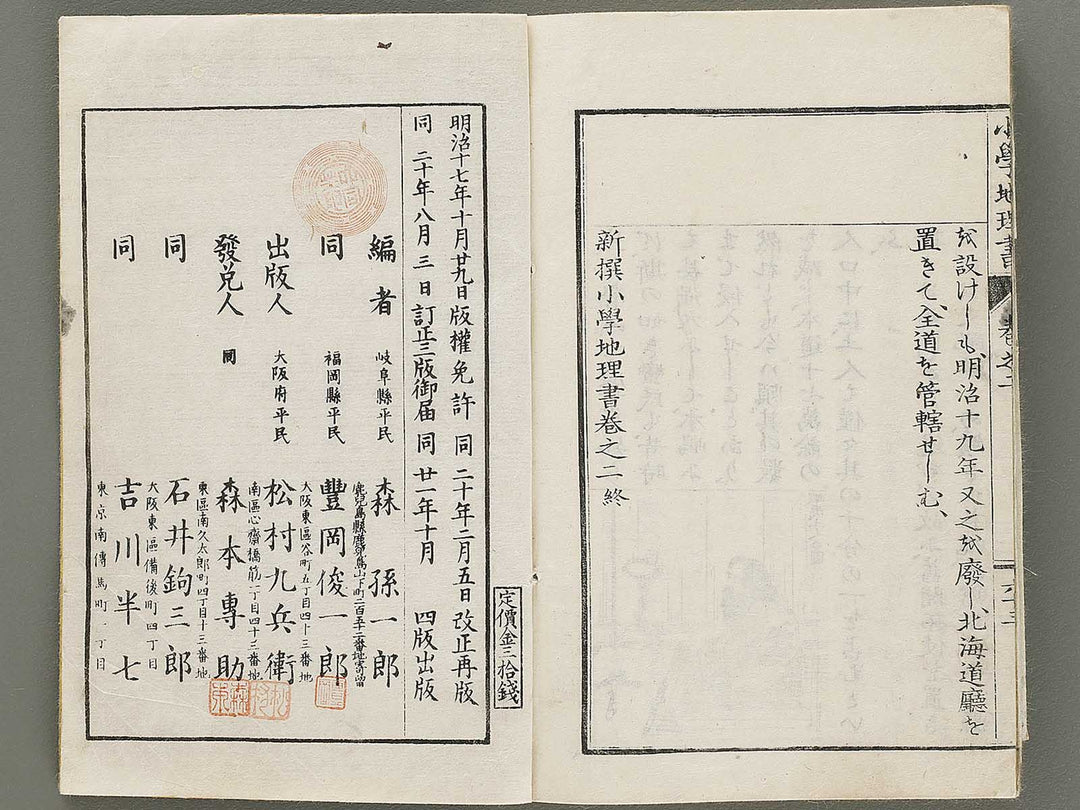 小學地理書
卷之二
六十三
を設けしも、明治十九年又之を廢し、北海道廳を
置きて、全道を管轄せしむ、
新撰小學地理書卷之二終
定價金三拾錢
明治十七年十月廿九日版權免許 同二十年二月五日改正再版
同 二十年八月三日訂正三版御届 同廿一年十月 四版出版
編者 岐阜縣平民 森孫一郎
鹿兒島縣鹿兒島山下町二百五十二番地寄留
同 福岡縣平民 豐岡俊一郎
大阪東區谷町五丁目四十三番地
出版人 大阪府平民 松村九兵衛
南區心齋橋筋一丁目四十三番地
發兌人 同 森本專助
東區南久太郎町四丁目十三番地
同 石井鉤三郎
大阪東區備後町四丁目
同 吉川半七
東京南傳馬町一丁目